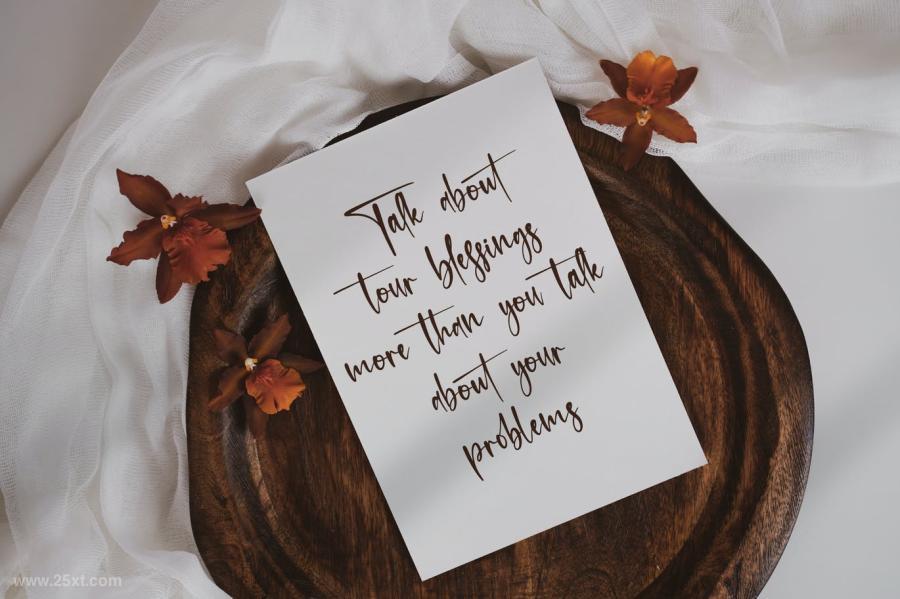 Talk about
tour blessings
more than you talk
about your
problems
www.25xt.com